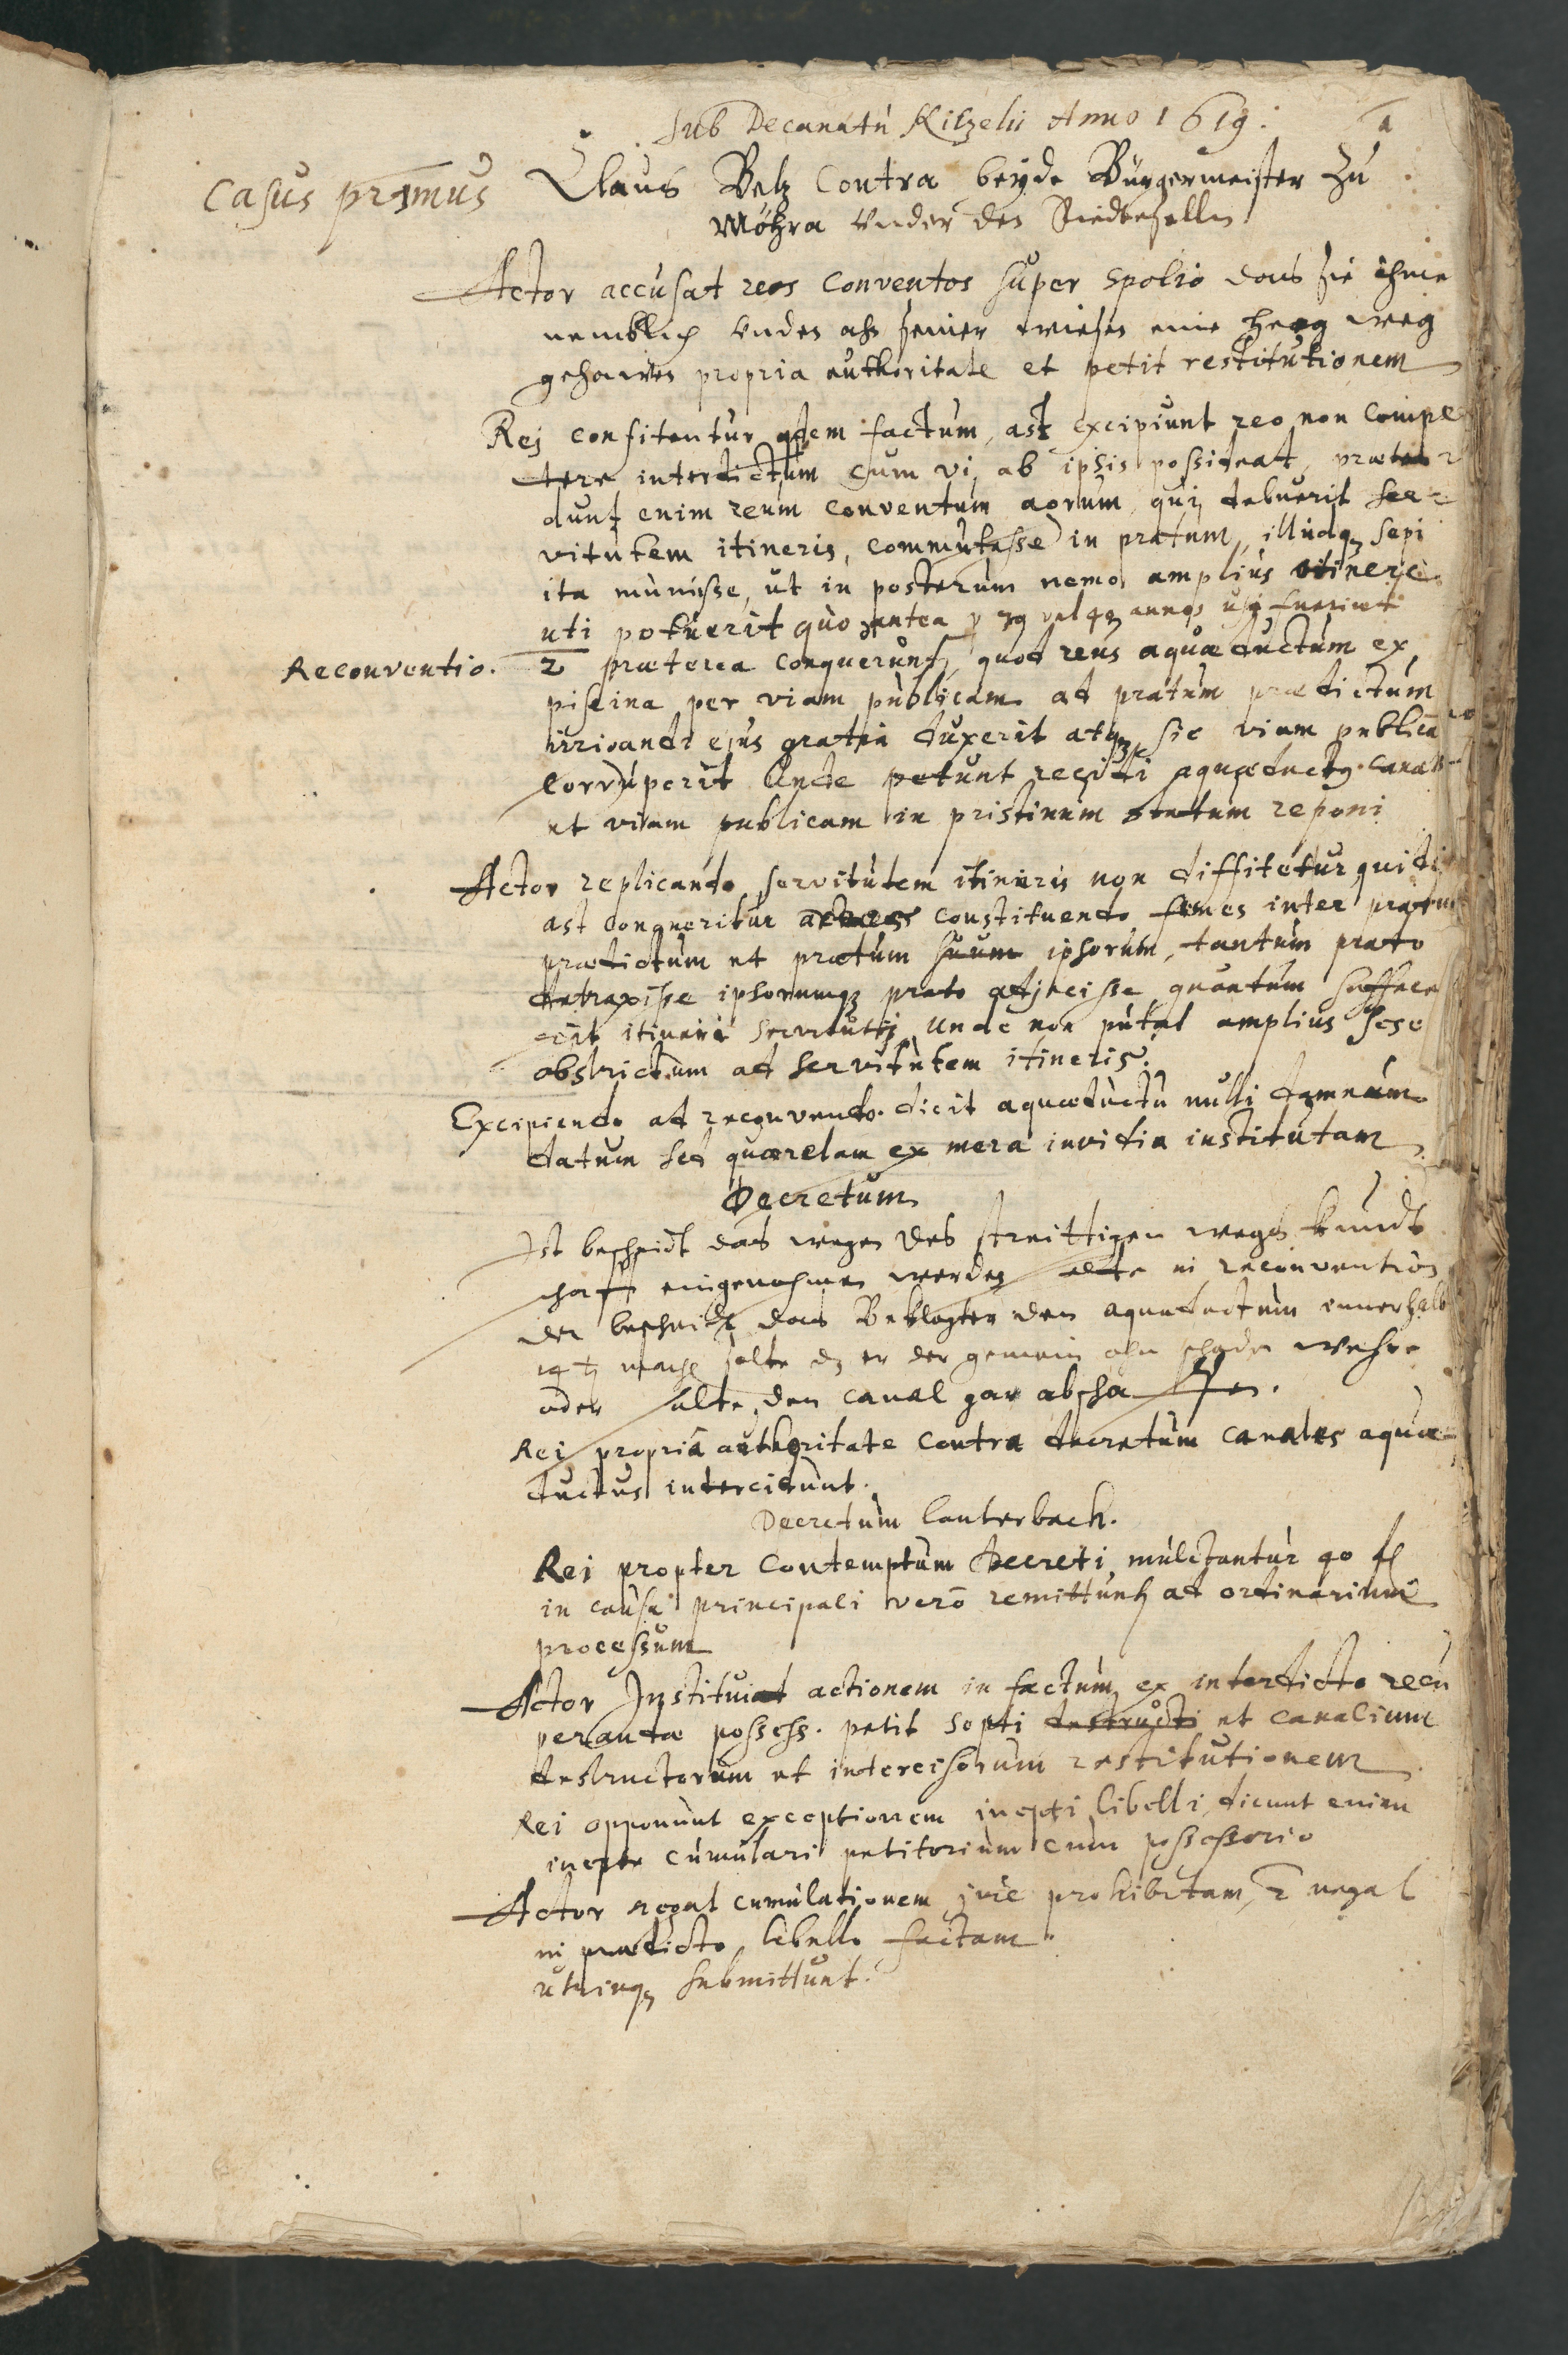 Sub Decanatu Kitzelii Anno 1619.
a
Casus primus
Claus Velz Contra beyde Bürgermeister zu
Möhra under den Riedtesellen
Actor accusat reos conventos super spolio das sie ihme
nemblich unden ahn seiner wiesen eine heeg weg
gehawen propria authoritate et petit restitutionem
Rej confitentur qdem factum, ast excipiunt reo non compe
tere interdictum cum vi ab ipsis possideat, præten
dunt enim reum conventum agrum, qui debuerit ser=
vitutem itineris, commutasse in pratum, illudq3 sepi
ita munisse, ut in posterum nemo amplius itinere
uti potuerit quo antea p 39 vel 40 annos usi fuerint
Reconventio.
2 præterea conquerunt, quod reus aquæductum ex
piscina per viam publicam ad pratum prædictum
irrigandi ejus gratia duxerit atq3 sic viam publicā
corruperit Unde petunt recidi aquæductq canales
et viam publicam in pristinum statum reponi
Actor replicando, servitutem itineris non diffitetur quidē
ast conqueritur constituendo fines inter pratum
prædictum et pratum suum ipsorum, tantum prato
detraxisse ipsorumq3 prato adjecisse quantum suffece
rit itineri servituti, Unde non putat amplius sese
obstrictum ad servitutem itineris.
Excipiendo ad reconvento. dicit aquæductu nulli damnum
datum sed quærelam ex mera invidia institutam
Decretum
Ist bescheidt das wegen des streittigen wegs kundt
schaft eingenohmen werden in reconvention
der bescheidt das Beklagter den aquæductum innerhalb
14 t machen solte dz er der gemein ohn schaden wehre
oder solte den canal gar abschaffen.
Rei propriâ authoritate contra decretum canales aquæ
ductus interciduut.
Decretum Lauterbach.
Rei propter contemptum decreti mulctantur 40 fl
in causa principali verō remittunt ad ordinarium
processum
Actor Instituiat actionem in factum ex interdicto recu
perandæ possess. petit septi destructi et canalium
destructorum et intercisorum restitutionem
Rei opponunt exceptionem inepti libelli, dicunt enim
inepte cumulari petitorium cum possessorio
Actor negat cumulationem jure prohibitam, 2 negat
in prædicto libello factam
utrinq3 submittunt.